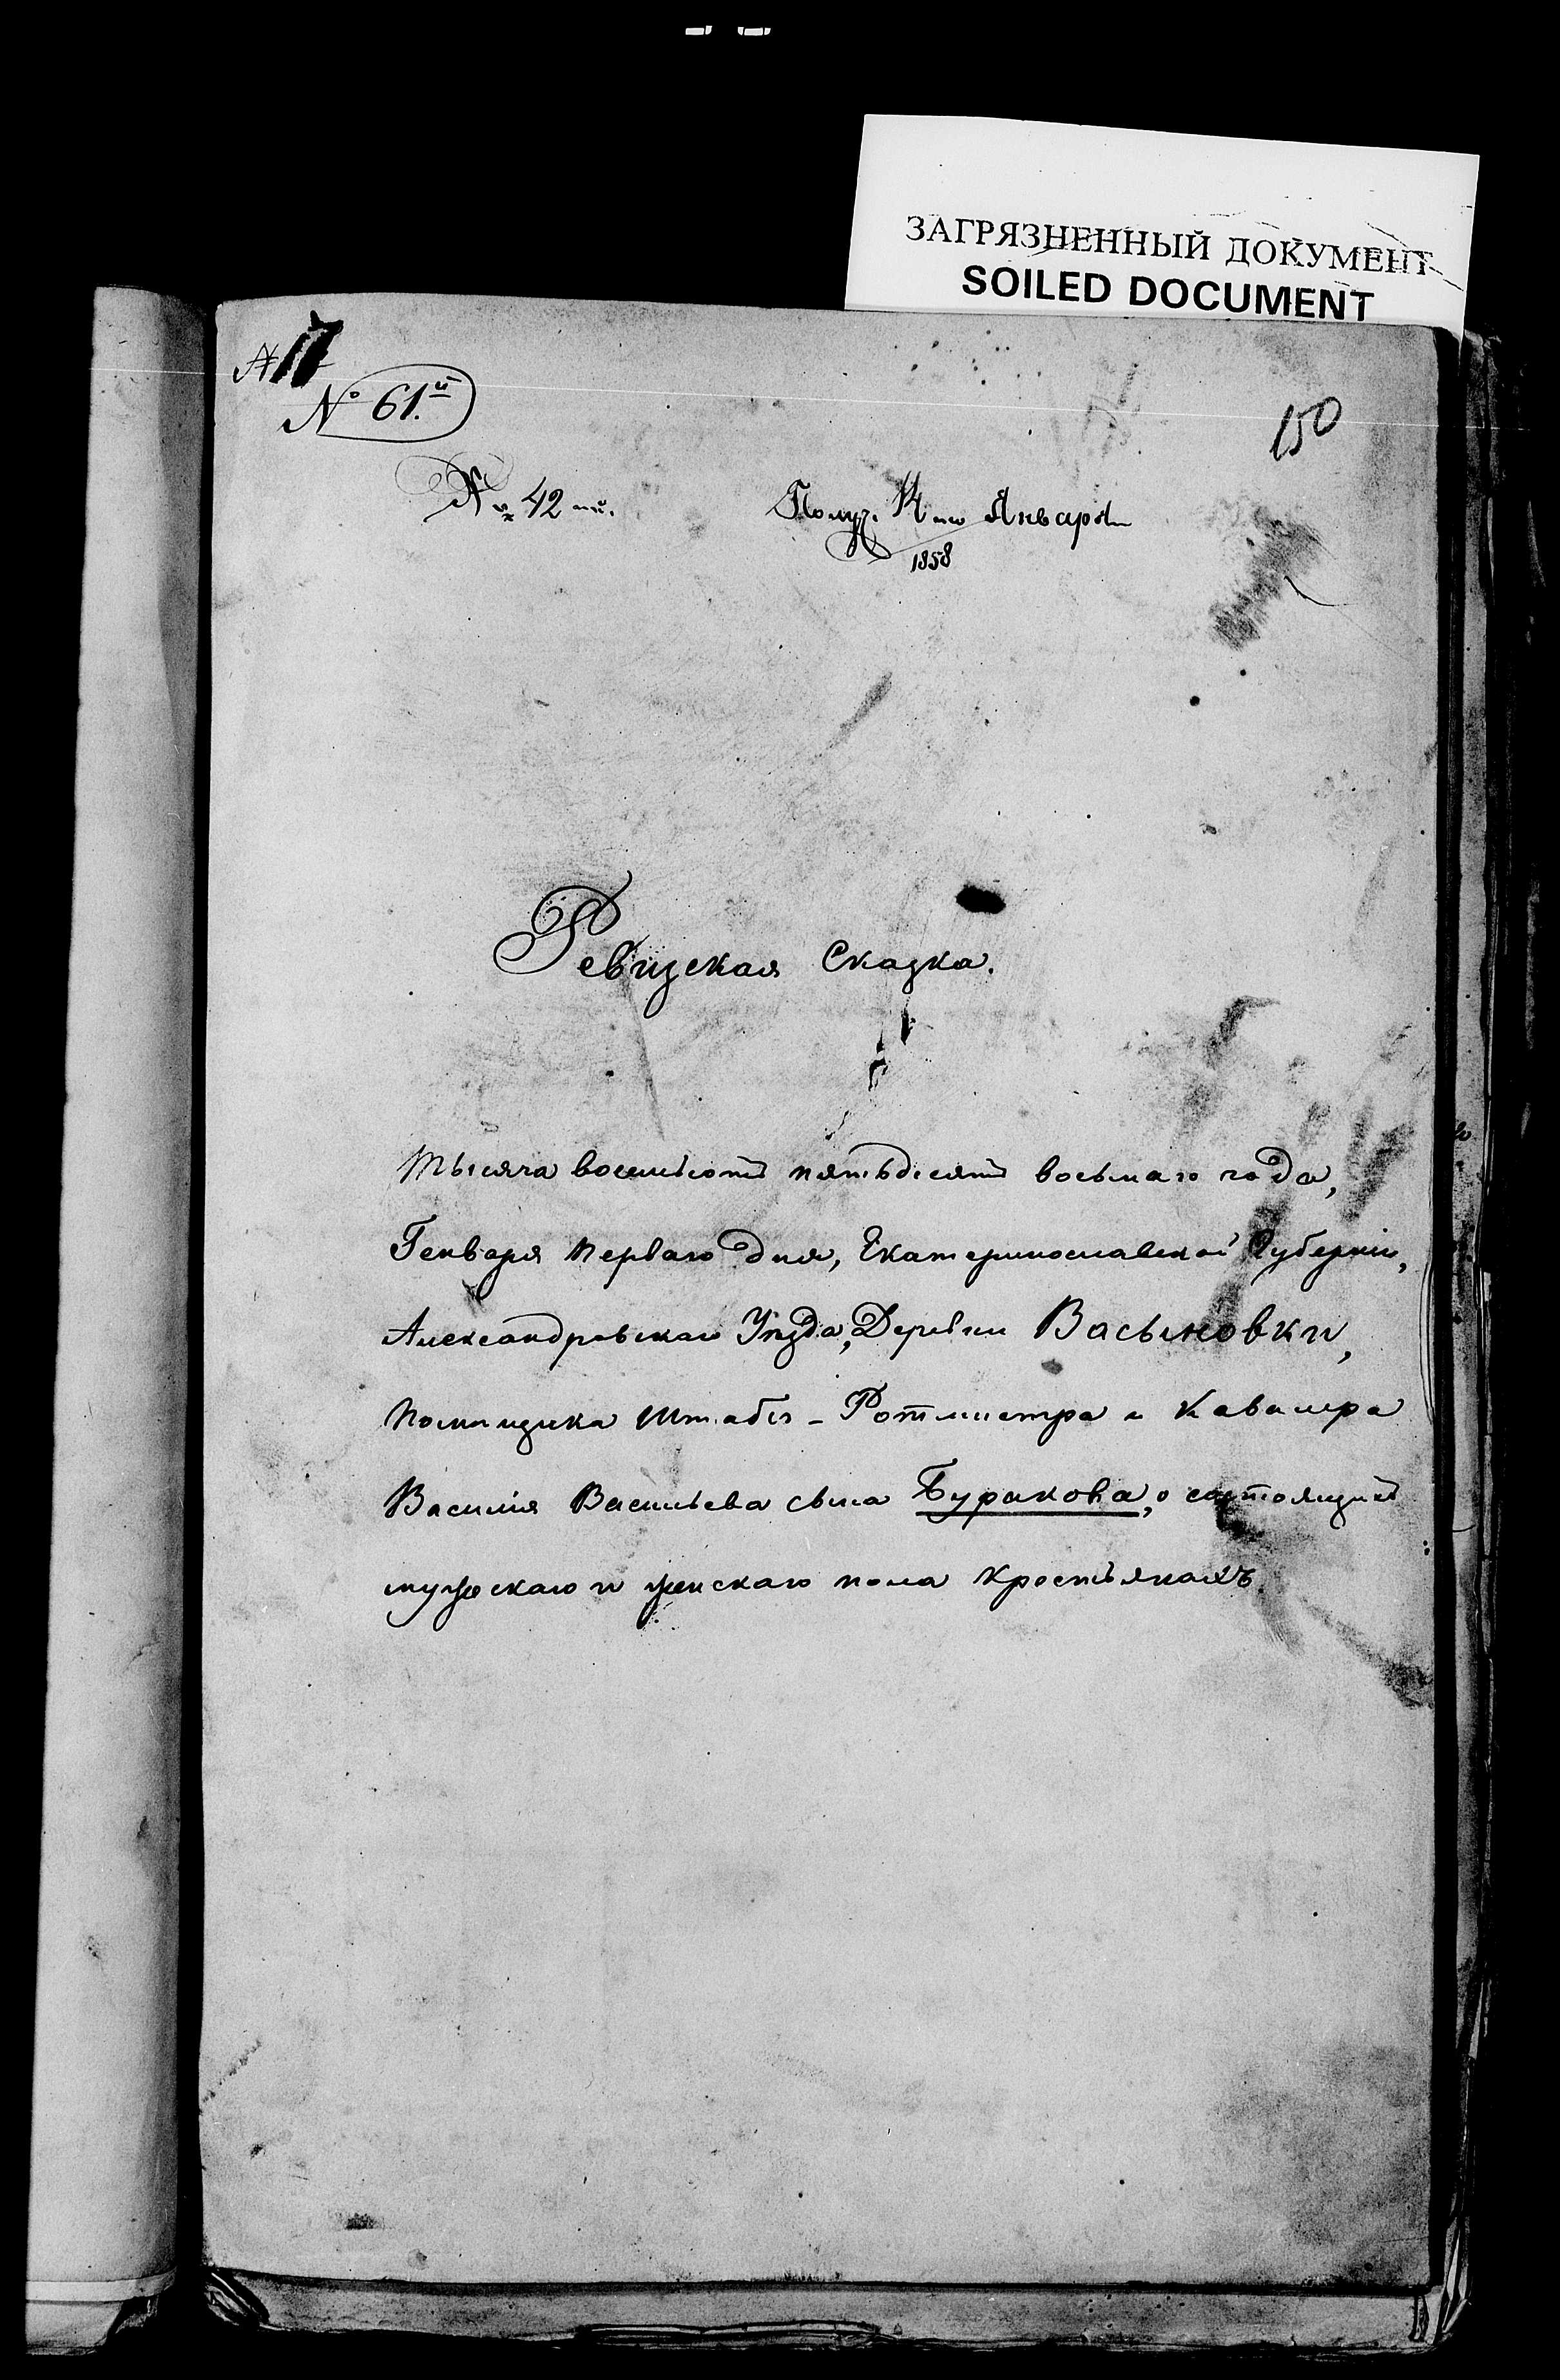 ЗАГРЯЗНЕННЫЙ ДОКУМЕНТ
SOILED DOCUMENT
17
№ 61.й
150
№ 42
Получ. Января
1858
Ревизская Сказка.
Тысяча восемьсотъ пятьдесятъ восьмаго года,
Генваря перваго дня, Екатеринославской Губерніи,
Александровскаго Уѣзда, Деревни Васьиновки,
помѣщика Штабсъ-Ротмистра и Кавалера
Василія Васильева сына Буракова, о состоящихъ
мужескаго и женскаго пола крестьянахъ